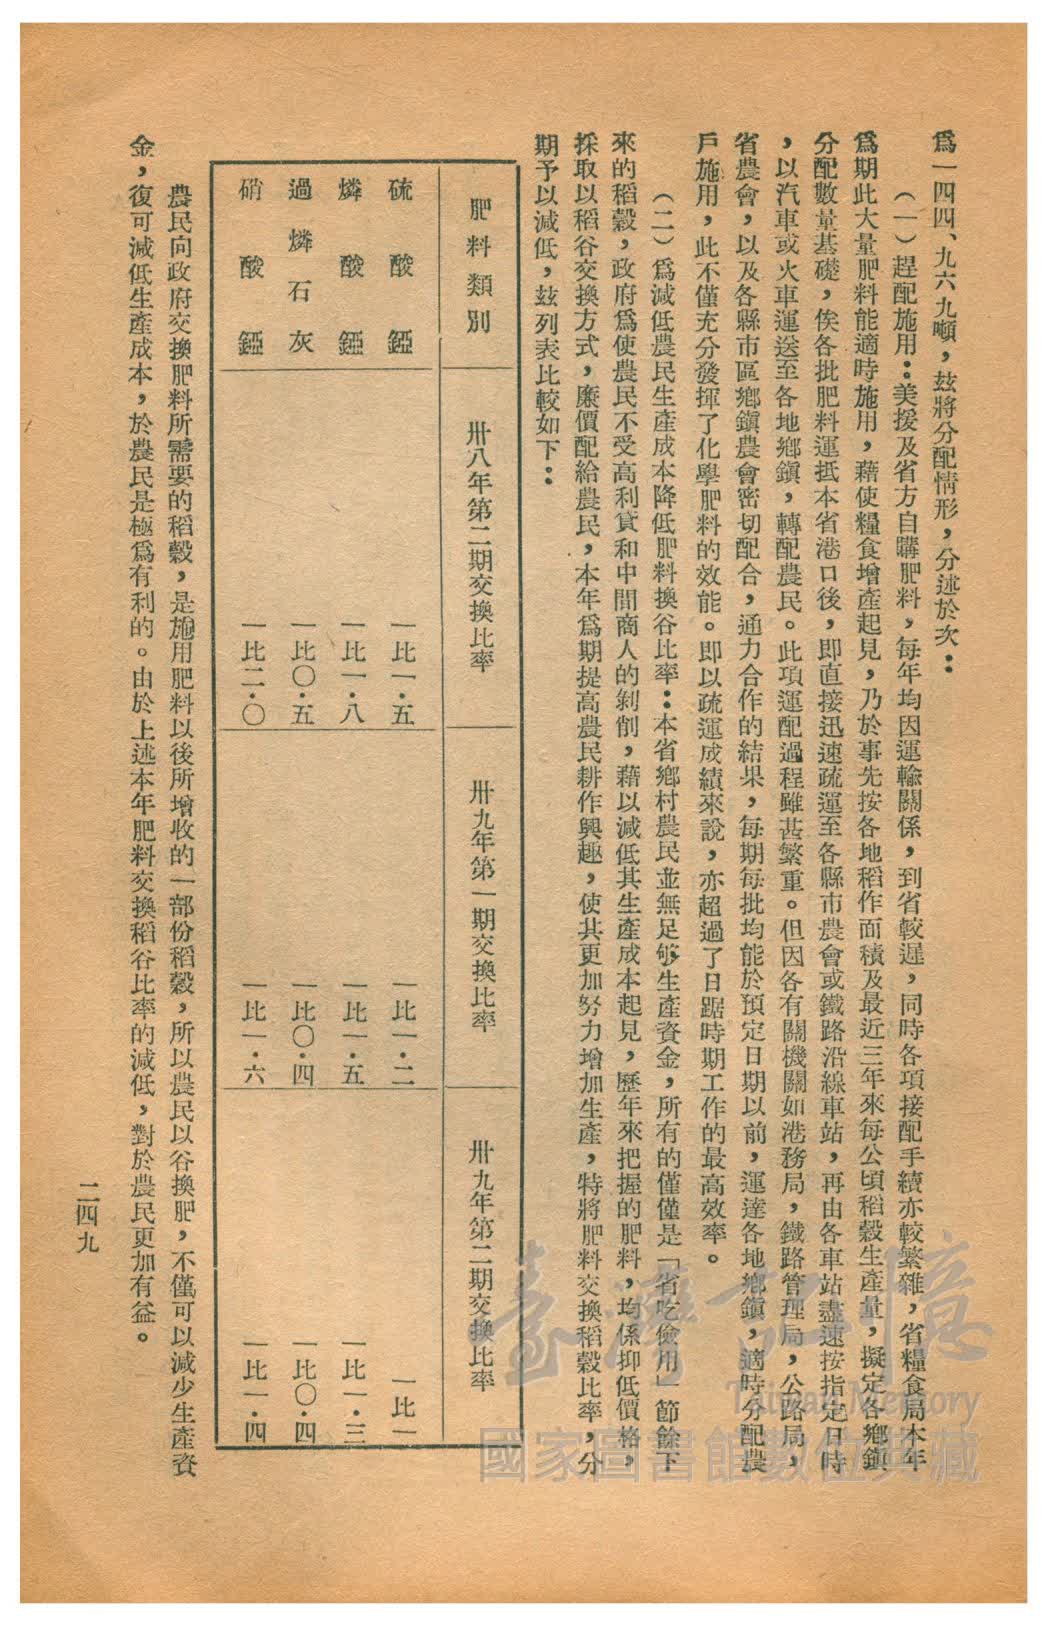 爲一四四、九六九噸，玆將分配情形，分述於次：
（一）趕配施用：美援及省方自購肥料，每年均因運輸關係，到省較遲，同時各項接配手續亦較繁雜，省糧食局本年
爲期此大量肥料能適時施用，藉使糧食增產起見，乃於事先按各地稻作面積及最近三年來每公頃稻穀生產量，擬定各鄉鎮
分配數量基礎，俟各批肥料運抵本省港口後，即直接迅速疏運至各縣市農會或鐵路沿線車站，再由各車站盡速按指定日時
，以汽車或火車運送至各地鄉鎮，轉配農民。此項運配過程雖甚繁重。但因各有關機關如港務局，鐵路管理局，公路局，
省農會，以及各縣市區鄉鎮農會密切配合，通力合作的結果，每期每批均能於預定日期以前，運達各地鄉鎮，適時分配農
戶施用，此不僅充分發揮了化學肥料的效能。即以疏運成績來說，亦超過了日踞時期工作的最高效率。
（二）爲減低農民生產成本降低肥料換谷比率：本省鄉村農民並無足够生產資金，所有的僅僅是「省吃儉用」節餘下
來的稻穀，政府爲使農民不受高利貸和中間商人的剝削，藉以減低其生產成本起見，歷年來把握的肥料，均係抑低價格，
採取以稻谷交換方式，廉價配給農民，本年爲期提高農民耕作興趣，使其更加努力增加生產，特將肥料交換稻穀比率，分
期予以減低，玆列表比較如下：
肥料類別 卅八年第二期交換比率 卅九年第一期交換比率 卅九年第二期交換比率
硫酸錏 一比一·五 一比一·二 一比一
燐酸錏 一比一·八 一比一·五 一比一·三
過燐石灰 一比〇·五 一比〇·四 一比〇·四
硝酸錏 一比二·〇 一比一·六 一比一·四
農民向政府交換肥料所需要的稻穀，是施用肥料以後所增收的一部份稻穀，所以農民以谷換肥，不僅可以減少生產資
金，復可減低生產成本，於農民是極爲有利的。由於上述本年肥料交換稻谷比率的減低，對於農民更加有益。
二四九
臺灣記憶
Taiwan Memory
國家圖書館數位典藏